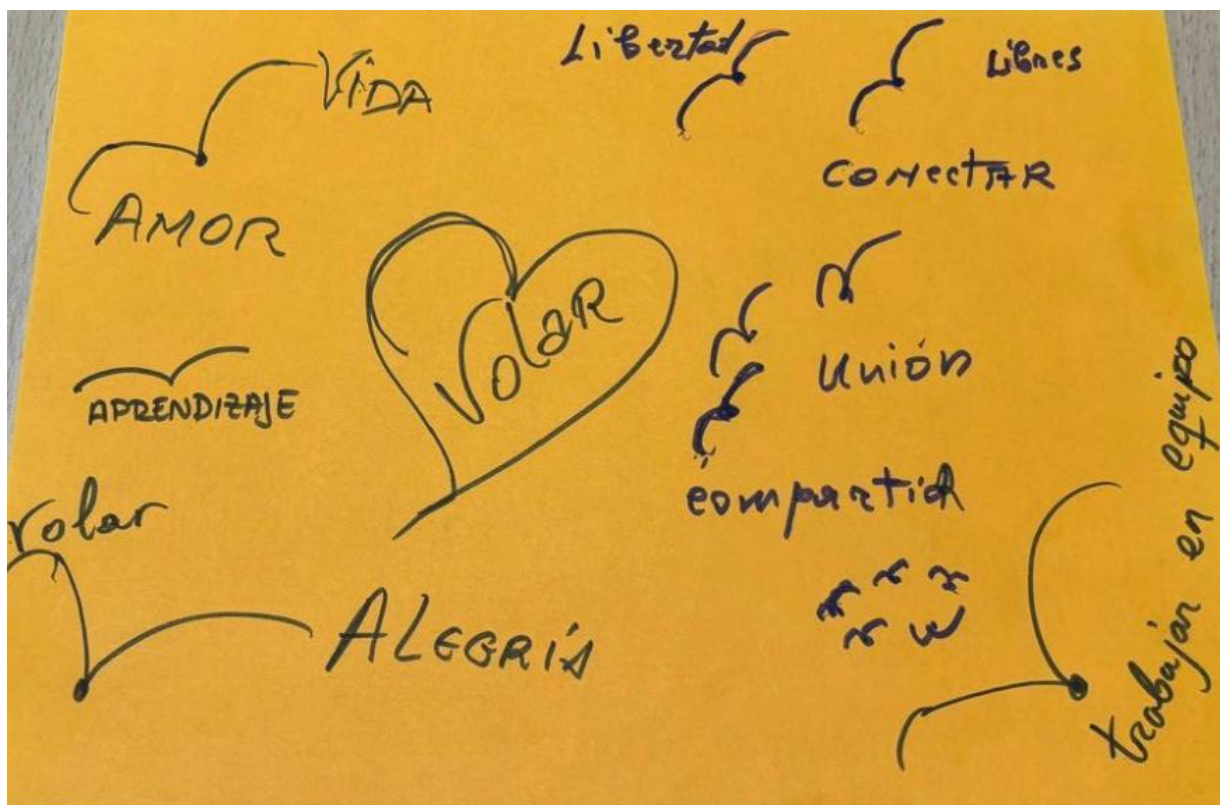 Libertad
Libres
VIDA
CONECTAR
AMOR
VOLAR
Unión
APRENDIZAJE
compartir
volar
ALEGRÍA
trabajar en equipo